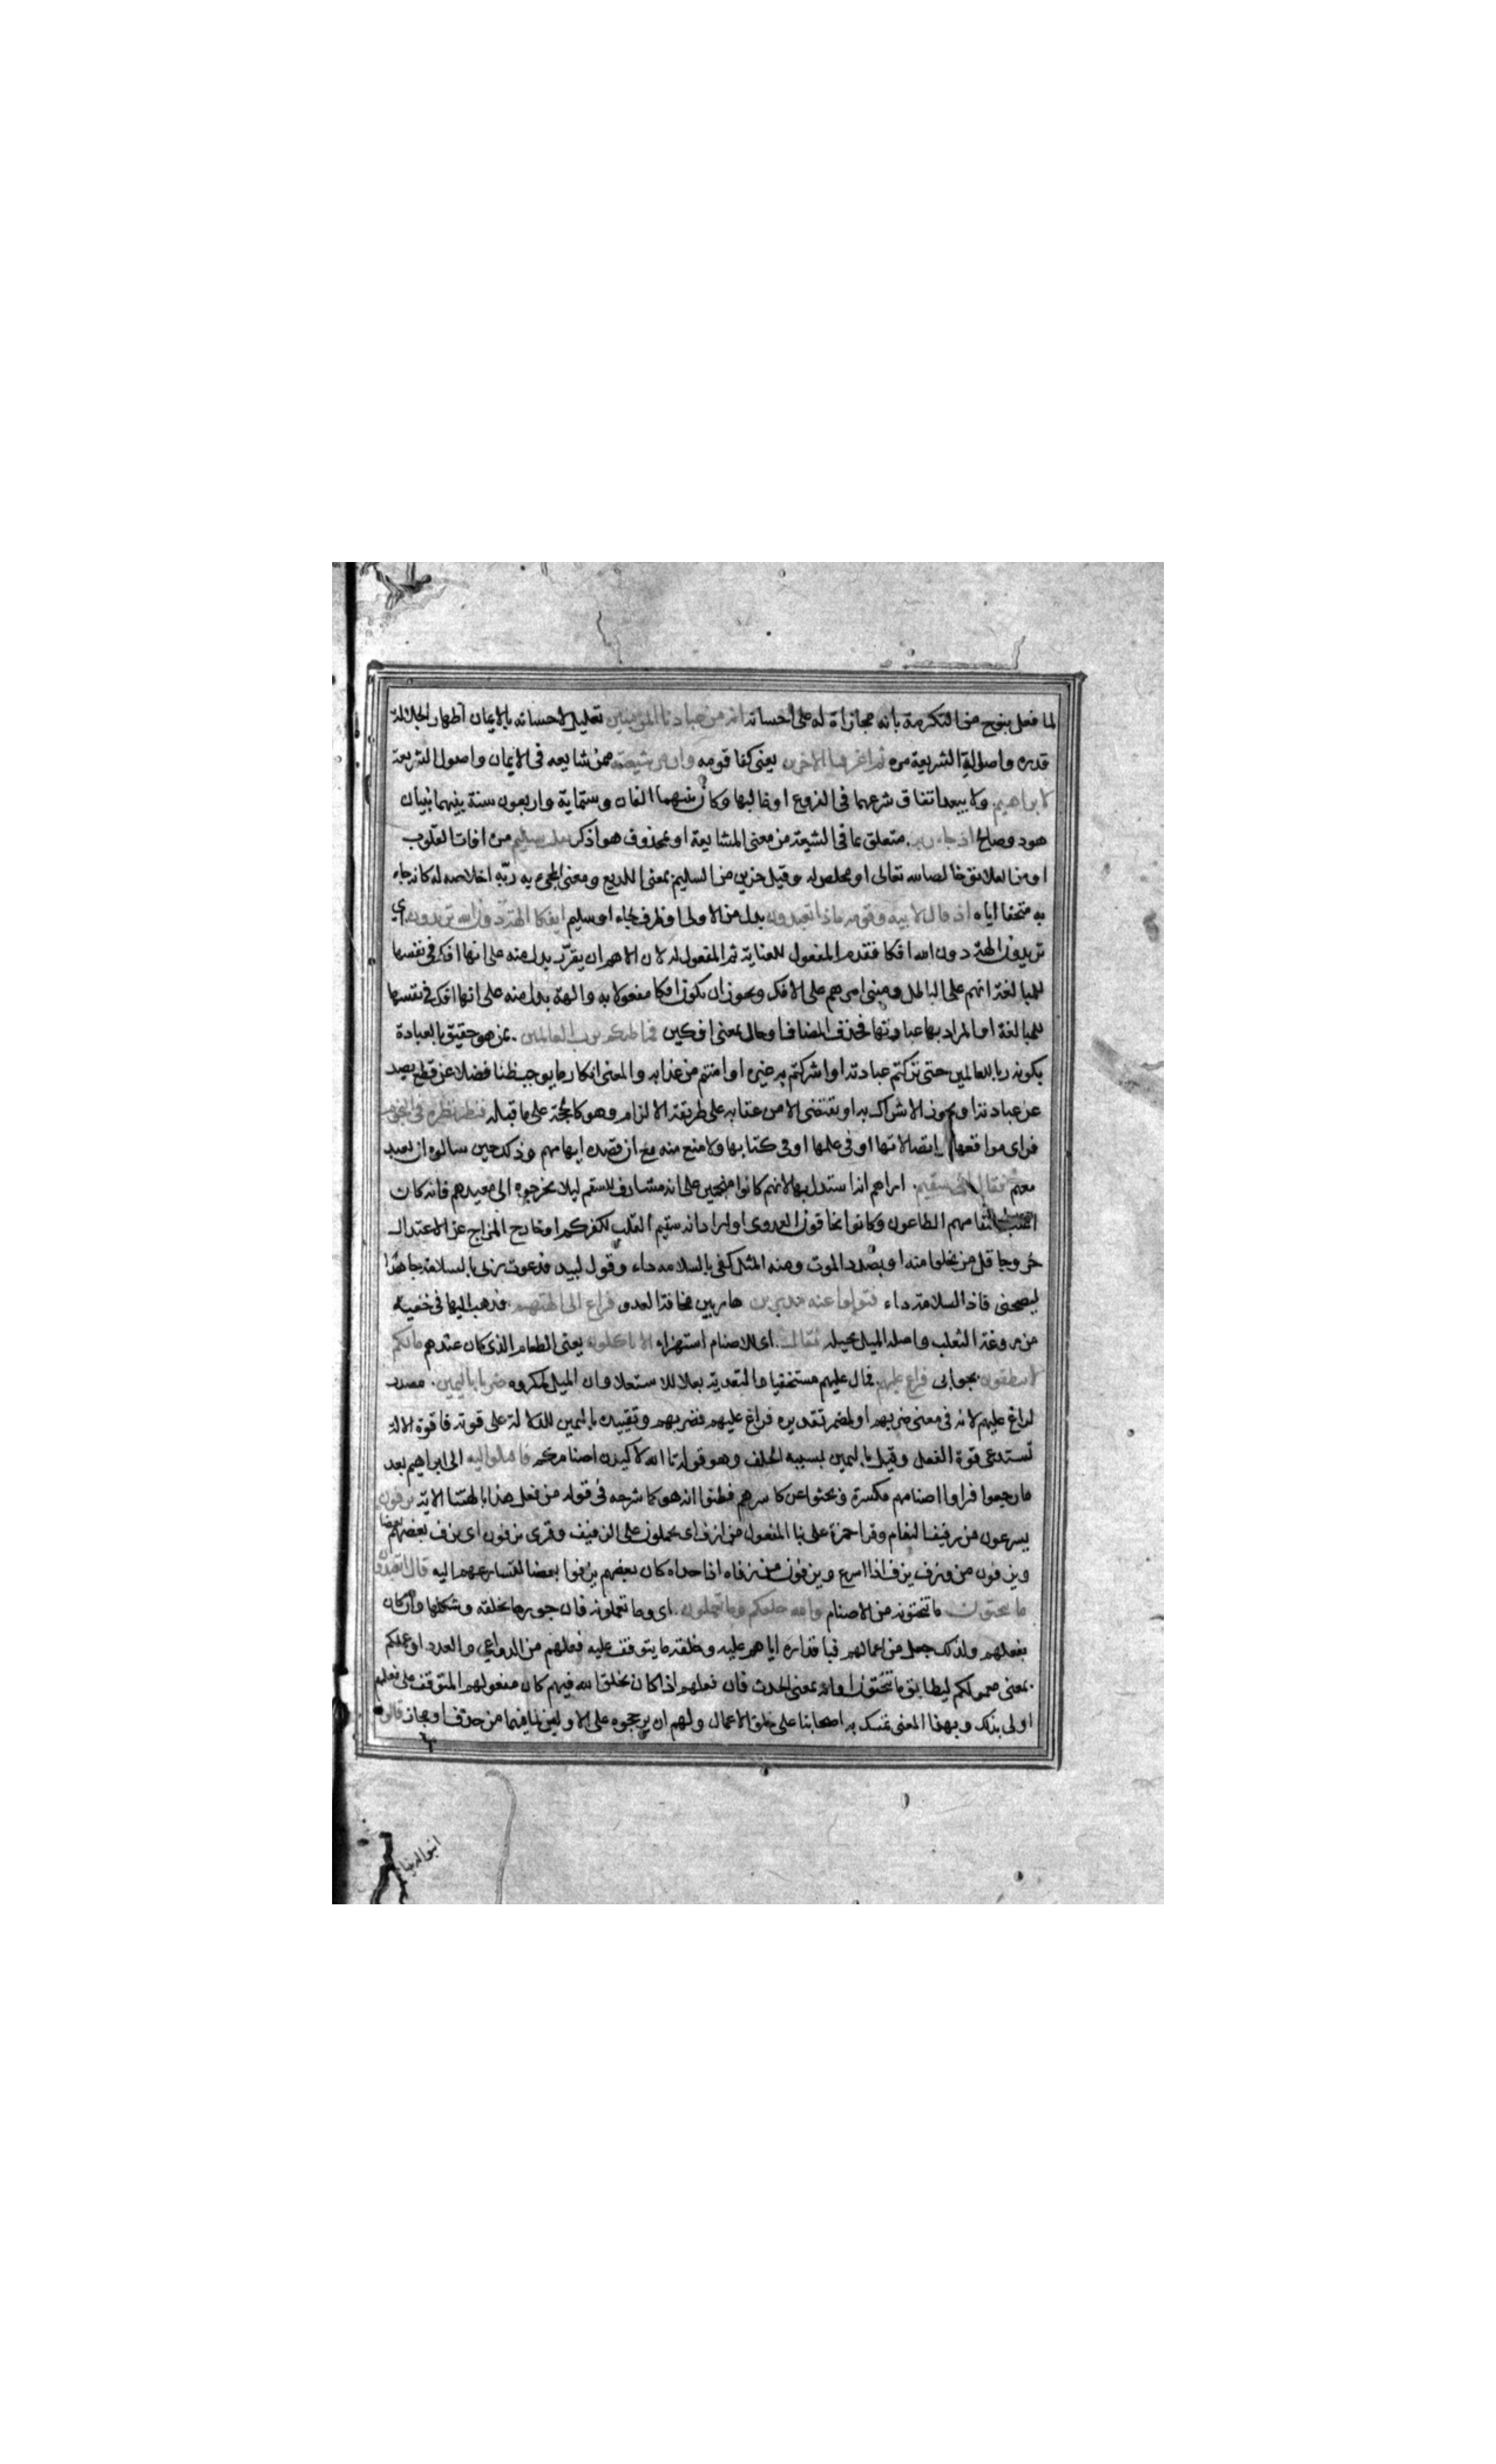 لما فعل بنوح من التكرمة بانه مجازاة له على احسانه انه من عبادنا المؤمنين تعليل لاحسانه بالايمان اظهارا لجلالة
قدره واصالة الشريعة مره ثم اغرقنا الاخرين يعنى كفا قومه وان من شيعته ممن شايعه فى الايمان واصول الشريعة
لابراهيم ولا يبعد اتفاق شرعهما فى الفروع او غالبها وكان بينهما الفان وستماية واربعون سنة بينهما نبيان
هود وصالح اذ جاء ربه متعلق بما فى الشيعة من معنى المشايعة او بمحذوف هو اذكر بقلب سليم من افات القلوب
او من العلائق خالص لله تعالى او مخلص له وقيل حزين من السليم بمعنى اللديغ ومعنى المجىء به ربه اخلاصه له كانه جاء
به متحفا اياه اذ قال لابيه وقومه ماذا تعبدون بدل من الاولى او ظرف لجاء او سليم ائفكا الهة دون الله تريدون اي
تريدون الهة دون الله افكا فقدم المفعول للعناية ثم المفعول له لان الاهم ان يقرر بدل منه على انها افك فى نفسها
للمبالغة انهم على الباطل ومبنى امرهم على الافك ويجوز ان يكون افكا مفعولا به والهة بدل منه على انها افك فى نفسها
للمبالغة او المراد بها عبادتها فحذف المضاف او حال بمعنى افكين فما ظنكم برب العالمين بمن هو حقيق بالعبادة
بكونه ربا للعالمين حتى تركتم عبادته او اشركتم به غيره او امنتم من عذابه والمعنى انكار ما يوجب ظنا فضلا عن قطع يصد
عن عبادته او يجوز الاشراك به او يقتضى الامن عقابه على طريقة الالزام وهو كالحجة على ما قبله فنظر نظرة فى النجوم
فراى مواقعها اتصالاتها او فى علمها او فى كتابها ولا منع منه مع ان قصده ايهامهم وذلك حين سالوه ان يعبد
معهم فقال انى سقيم اراهم انه استدل بها لانهم كانوا منجمين على انه مشارف للسقم ليلا يخرجوه الى معيدهم فانه كان
اغلب اسقامهم الطاعون وكانوا يخافون العدوى او اراد انه سقيم القلب لكفركم او خارج المزاج عن الاعتدال
خروجا قل من يخلوا منه او بصدد الموت ومنه المثل كفى بالسلامه داء وقول لبيد فدعوت ربى بالسلامة جاهدا
ليصحنى فاذا السلامة داء فتولوا عنه مدبرين هاربين مخافة العدو فراغ الى الهتهم فذهب اليها فى خفية
من روغة الثعلب واصله الميل بحيلة فقال اى للاصنام استهزاء الا تاكلون يعنى الطعام الذى كان عندهم ما لكم
لا تنطقون بجوابى فراغ عليهم فمال عليهم مستخفيا والتعدية بعلا للاستعلا وان الميل لمكروه ضربا باليمين مصدر
لراغ عليهم لانه فى معنى ضربهم او لمضمر تقديره فراغ عليهم فضربهم وتقييده باليمين للدلالة على قوته فان قوة الالة
تستدعى قوة الفعل وقيل باليمين بسبب الحلف وهو قوله تا الله لاكيدن اصنامكم فاقبلوا اليه الى ابراهيم بعد
ما رجعوا فراوا اصنامهم مكسرة وبحثوا عن كاسرهم فظنوا انه هو كما شرحه فى قوله من فعل هذا بالهتنا الاية يزفون
يسرعون من زفيف النعام وقرا حمزة على بنا المفعول من ازف اى يحملون على الزفيف وقرى يزفون اى يزف بعضهم بعضا
ويزفون من وزف يزف اذا اسرع ويزفون من زفاه اذا حداه كان بعضهم يزفوا بعضا لتسارعهم اليه قال اتعبدون
ما تنحتون ما تنحتونه من الاصنام والله خلقكم وما تعملون اى وما تعملونه فان جوهرها بخلقه وشكلها وان كان
بفعلهم ولذلك جعل من اعمالهم فباقداره اياهم عليه وخلقه ما يتوقف عليه فعلهم من الدواعي والعدد او عملكم
بمعنى معمولكم ليطابق ما تنحتون او انه بمعنى الحدث فان فعلهم اذا كان بخلق الله فيهم كان مفعولهم المتوقف على فعلهم
اولى بذلك وبهذا المعنى تمسك به اصحابنا على خلق الاعمال ولهم ان يرجحوه على الاولين لما فيهما من حذف او مجاز قالوا